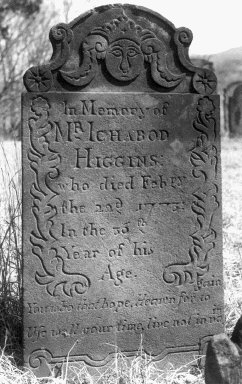 In Memory of
Mr. ICHABOD
HIGGINS:
who died Febry
the 2nd 1773:
In the 36th
Year of his
Age.
You who that hope, Heaven for to
Use well your time, live not in